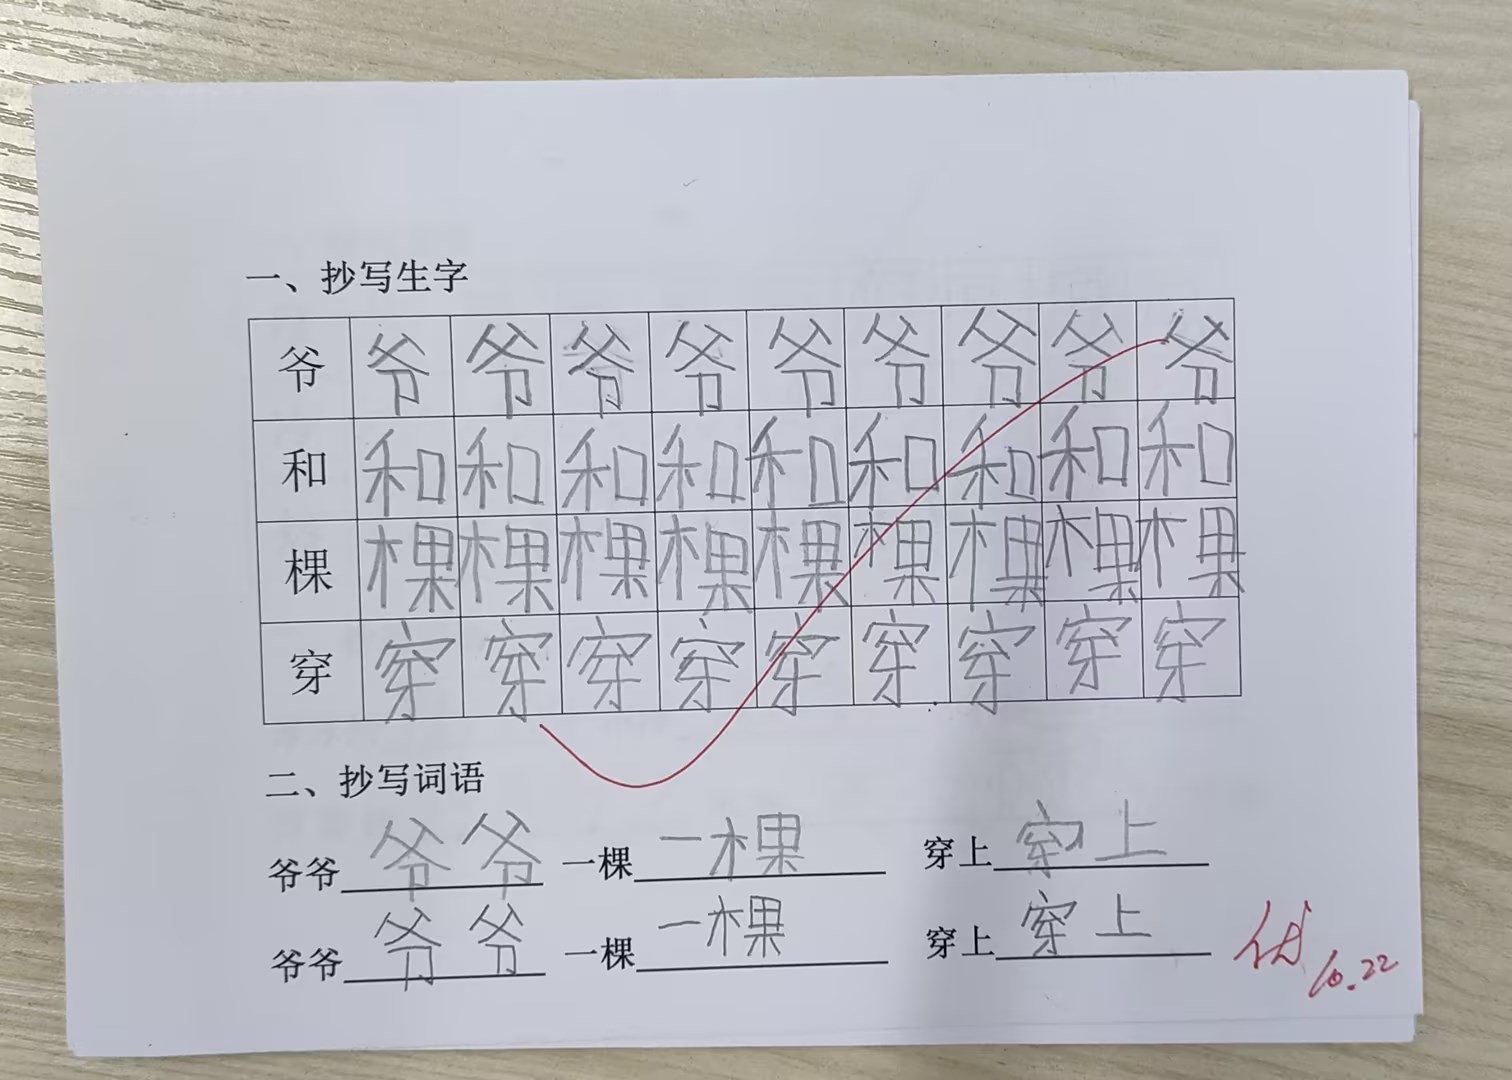 一、抄写生字
爷 爷 爷 爷 爷 爷 爷 爷 爷 爷
和 和 和 和 和 和 和 和 和 和
棵 棵 棵 棵 棵 棵 棵 棵 棵 棵
穿 穿 穿 穿 穿 穿 穿 穿 穿 穿
二、抄写词语
爷爷 爷爷 一棵 一棵 穿上 穿上
爷爷 爷爷 一棵 一棵 穿上 穿上
优 10.22